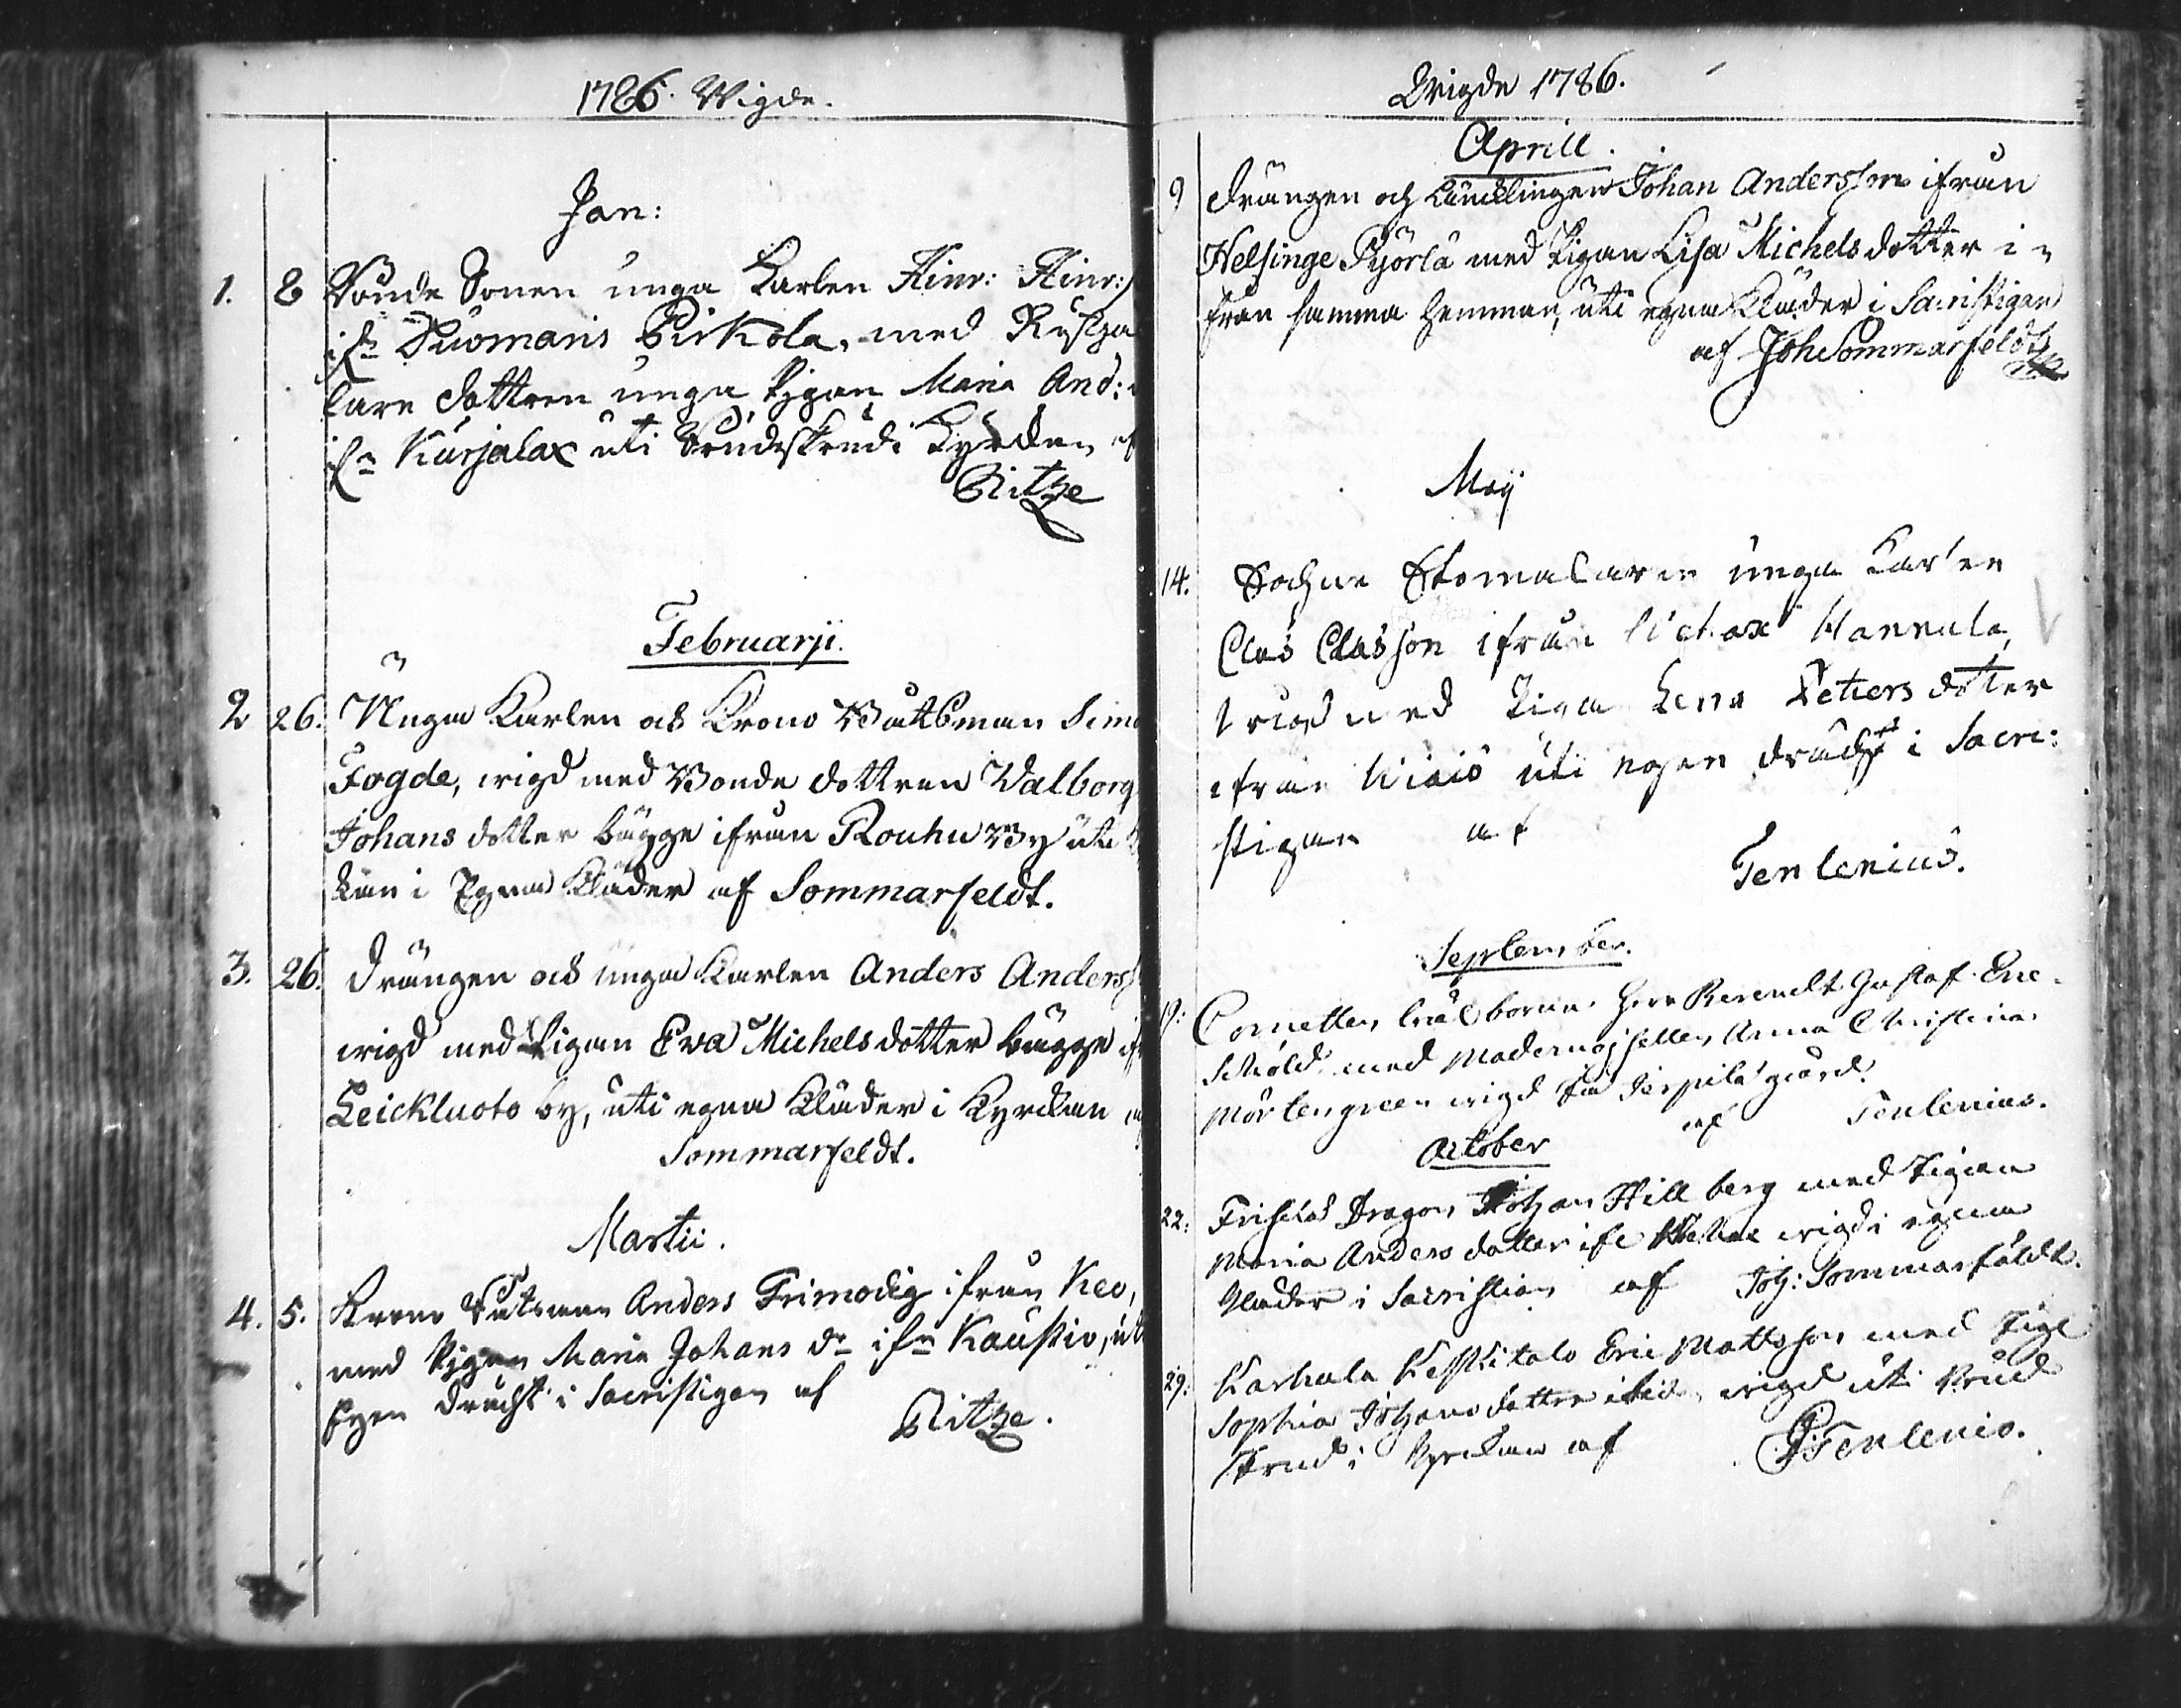 1786. Wigde.
Jan:
1. 8 Bonde Sonen unga Karlen Hinr: Hinr:s
ifn Suomaris Pirkola, med Rustha
lare dottren unga Pigan Maria And:
ifn Kurjalax uti Brudskrud i Kyrckan, af
Ritze
Februarji.
2 26. Unga Karlen och Krono Båtsman Simo
Fogde, wigd med Bonde dottren Walborg
Johans dotter bägge ifrån Rouhu By uti
kan i Egna Kläder af Sommarfeldt.
3. 26. Drängen och unga Karlen Anders Anderss
wigd med Pigan Eva Michels dotter bägge ifr
Leickluoto by, uti egna Kläder i Kyrckan af
Sommarfeldt.
Martii.
4. 5. Krono Båtsman Anders Frimodig ifrån Keo,
med Pigan Maria Johans dr ifn Kaustio, ut
Egen drächt i Sacristigan af
Ritze.
Wigde 1786.
Aprill.
9 Drängen och Äncklingen Johan Andersson ifrån
Helsinge Pyörlä med Pigan Lisa Michels dotter i=
från samma hemman, uti egna Kläder i Sacristigan
af Joh Sommarfeldt
Maij
14. Sochne unga Karlen
Clas Classon ifrån Hannula,
wigd med Piga Lena Petters dotter
ifrån uti egen drächt i Sacri:
stigan af
Tenlenius.
September.
Cornetten wälborne Herr Berendt Gustaf Ene
schöld med Mademojsellen Anna Christina
Mörtengreen wigd på Jerpilä gård.
af Tenlenius.
October
22: Friskas Dragon Johan Hillberg med Pigan
Maria Anders dotter wigd i egna
Kläder i Sacristian af Joh: Sommarfäldt.
29: Karhula Keskitalo Eric Mattsson med Pigl
Sophia Johans dotter ibid. wigd uti Brud
skrud i Kyrckan af Tenlenio.